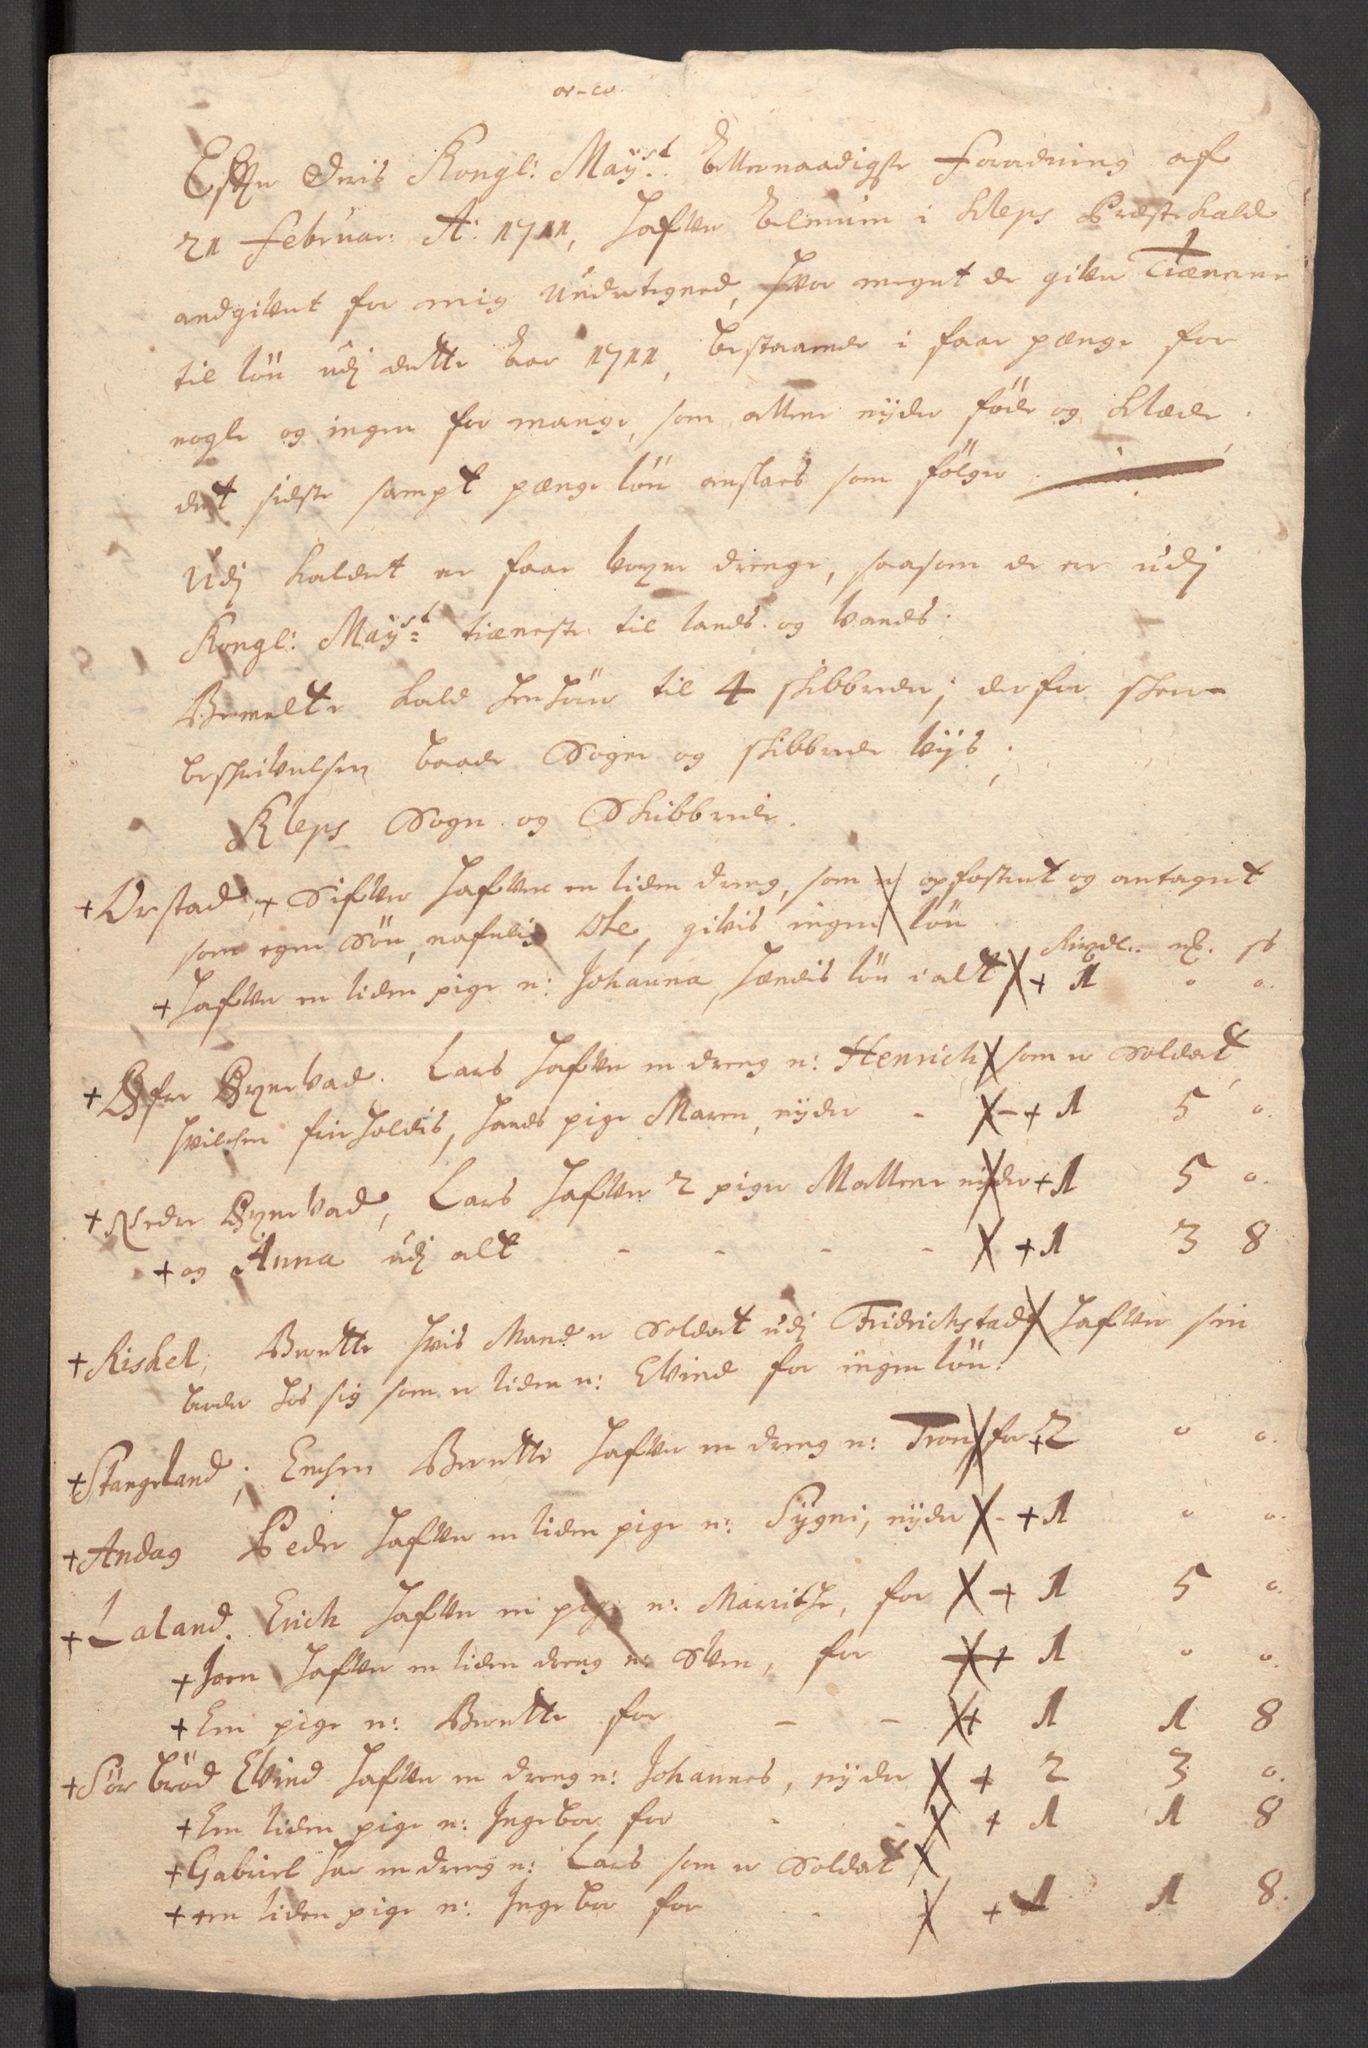 Efter Deris Kongl: Mayst: allernaadigste forordning af
21 Februar: A: 1711, hafver Almuen i Kleps Præstekald
andgivet for mig Undertegned, hvor meget de giver Tienerne
til løn udj dette Aar 1711, bestaaende i faar penge for
nogle og ingen for mange, som allene nyder føde og klæder,
det sidste sampt penge løn anslaes som følger
Udj kaldet er faar voxne drenge, saasom de er udj
Kongl: Mayst: tieneste til lands og vands.
Bemelte kald henhører til 4 skibbreder; derfor skeer
beskrivelsen baade Sogne og skibbrede vijs;
Kleps Sogn og Skibbrede.
+ Orstad, + Sifver hafver en liden dreng, som er opfostret og antaget
som egen Søn, nafnlig Ole, givis ingen løn Rixdl.. m{k}. s{k}
+ hafver en liden pige n: Johanna, hendis løn i alt X + 1 0 0.
+ Øfre Øxnevad. Lars hafver en dreng n: Henrich X som er Soldat,
hvilchen frie holdis, hands pige Maren, nyder - X - + 1 5 0.
+ Nedre Øxnevad, Lars hafver 2 piger Mallene nyder + 1 5 0.
+ og Anna udj alt - - - - X + 1 3 8
+ Riskel, Berette hvis Mand er Soldat udj Fridrichstad X hafver sin
broder hos sig som er liden n: Elvind for ingen løn.
+ Stangeland; Enchen Berette hafver en dreng n: Tron X for + 2 0 0.
+ Andag Peder hafver en liden pige n: Sygni, nyder X - + 1 0 0.
+ Laland. Erich hafver en pige n: Marrithe, for X + 1 5 0.
+ Joen hafver en liden dreng n: Sven, for X + 1 0 0.
+ En pige n: Berette for - - X + 1 1 8
+ Sør Brød Elvind hafver en dreng n: Johannes, nyder X + 2 3 0.
+ En liden pige n: Ingebor for - - X + 1 1 8
+ Gabriel har en dreng n: Lars som er Soldat X
+ en liden pige n: Ingebor for - X + 1 1 8.